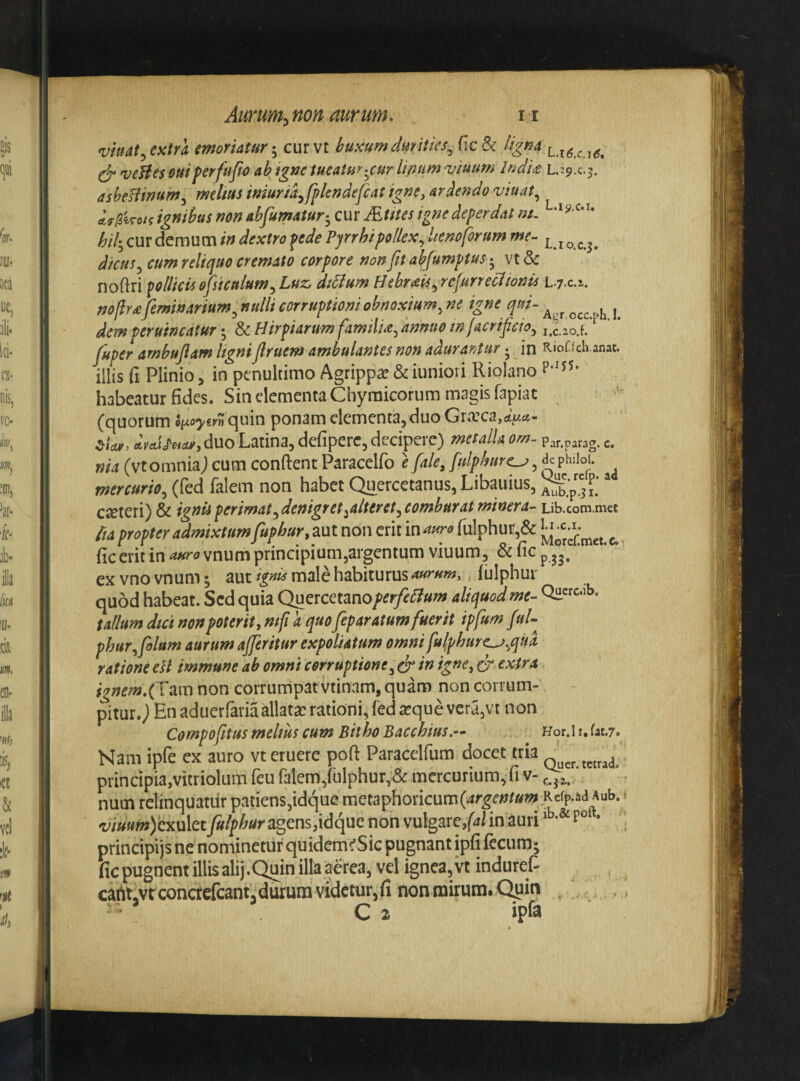 Aurum, non aurum. 11
viuat, extrà emoriatur; cur vt buxum durities, sic & ligna L.16.c.16.
& vestes oui perfusio ab igne tueatur; cur linum viuum Indiæ L.19.c.3.
asbestinum, melius iniuriâ, splendescat igne, ardendo viuat,
ignibus non absumatur; cur Ætites igne deperdat ni- L.19.c.1.
hil; cur demum in dextro pede Pyrrhi pollex, lienosorum me- L.10.c.3.
dicus, cum reliquo cremato corpore non sit absumptus; vt &
nostri pollicis ossiculum, Luz dictum Hebræis, resurrectionis L.7.c.2.
nostræ seminarium, nulli corruptioni obnoxium, ne igne qui- Agr.occ.ph.l.
dem peruincatur; & Hirpiarum familiæ, annuo in sacrificio, 1.c.20.f.
super ambustam ligni struem ambulantes non adurantur; in Riol.ich.anat.
illis si Plinio, in penultimo Agrippæ & iuniori Riolano p.155.
habeatur fides. Sin elementa Chymicorum magis sapiat
(quorum ὁμογενῆ quin ponam elementa, duo Græca,
duo Latina, desipere, decipere) metalla om- Par.parag. c.
nia (vt omnia) cum constent Paracelso è sale, sulphure, de philos.
mercurio, (sed salem non habet Quercetanus, Libauius, Que. resp. ad Aub.p.31.
cæteri) & ignis perimat, denigret, alteret, comburat minera- Lib.com.met
lia propter admixtum suphur, aut non erit in auro sulphur, & l.1.c.1. Moref.met.c.
sic erit in auro vnum principium, argentum viuum, & sic p.33.
ex vno vnum; aut ignis male habiturus aurum, sulphur
quòd habeat. Sed quia Quercetano perfectum aliquod me- Querc.ib.
tallum dici non poterit, nisi à quo separatum fuerit ipsum sul-
phur, solum aurum asseritur expoliatum omni sulphure, quâ
ratione est immune ab omni corruptione, & in igne, & extra
ignem. (Tam non corrumpat vtinam, quàm non corrum-
pitur.) En aduersariâ allatæ rationi, sed æquè verâ, vt non
Compositus melius cum Bitho Bacchius.-- Hor.l 1. sat.7.
Nam ipse ex auro vt eruere post Paracelsum docet tria Quer. tetrad.
principia, vitriolum seu salem, sulphur, & mercurium, si v- c.32.
num relinquatur patiens, idque metaphoricum (argentum Resp.ad Aub.
viuum) exulet sulphur agens, idque non vulgare, sal in auri ib.& post.
principijs ne nominetur quidem? Sic pugnant ipsi secum;
sic pugnent illis alij. Quin illa aërea, vel ignea, vt induref-
cant, vt concrescant, durum videtur, si non mirum. Quin
C 2 ipsa